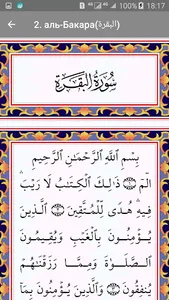 18:17
2. аль-Бакара(البقرة)
سُورَةُ ٱلْبَقَرَةِ
بِسْمِ ٱللَّهِ ٱلرَّحْمَٰنِ ٱلرَّحِيمِ
الٓمٓ ۝١ ذَٰلِكَ ٱلْكِتَٰبُ لَا رَيْبَ ۛ
فِيهِ ۛ هُدًى لِّلْمُتَّقِينَ ۝٢ ٱلَّذِينَ
يُؤْمِنُونَ بِٱلْغَيْبِ وَيُقِيمُونَ
ٱلصَّلَوٰةَ وَمِمَّا رَزَقْنَٰهُمْ
يُنفِقُونَ ۝٣ وَٱلَّذِينَ يُؤْمِنُونَ بِمَآ